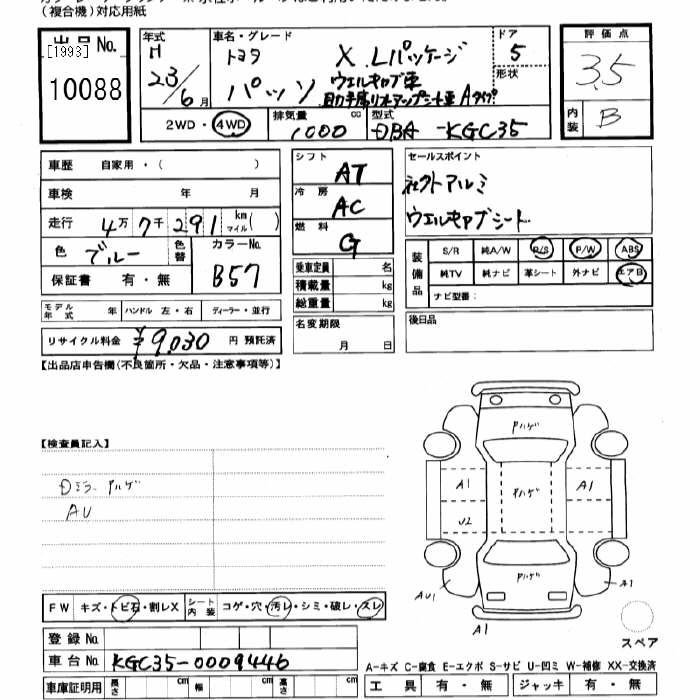 (複合機)対応用紙
出品No.
[1993]
10088
年式
H
23/6月
車名・グレード
トヨタ X Lパッケージ
パッソ ウェルキャブ車
助手席リフトアップシート車 Aタイプ
ドア
5
形状
2WD・4WD
排気量
1000 cc
型式
DBA-KGC35
評価点
3.5
内装
B
車歴 自家用・( )
車検 年 月
走行 4万7千291 km マイル( )
色 ブルー 色替
カラーNo.
B57
保証書 有・無
モデル年式 年 ハンドル 左・右 ディーラー・並行
リサイクル料金 ¥9,030 円 預託済
シフト
AT
冷房
AC
燃料
G
乗車定員 名
積載量 kg
総重量 kg
名変期限
月 日
セールスポイント
社外アルミ
ウェルキャブシート
装備品
S/R 純A/W P/S P/W ABS
純TV 純ナビ 革シート 外ナビ エアB
ナビ型番:
後日品
【出品店申告欄(不良箇所・欠品・注意事項等)】
【検査員記入】
Dミラー アルゲ
AU
アルゲ
A1
アルゲ
A1
U2
アルゲ
AU1
A1
A1
スペア
FW キズ・トビ石・割レX シート内装 コゲ・穴・汚レ・シミ・破レ・スレ
登録No.
車台No. KGC35-0009446
車庫証明用 長さ cm 幅 cm 高さ cm
A-キズ C-腐食 E-エクボ S-サビ U-凹ミ W-補修 XX-交換済
工具 有・無 ジャッキ 有・無